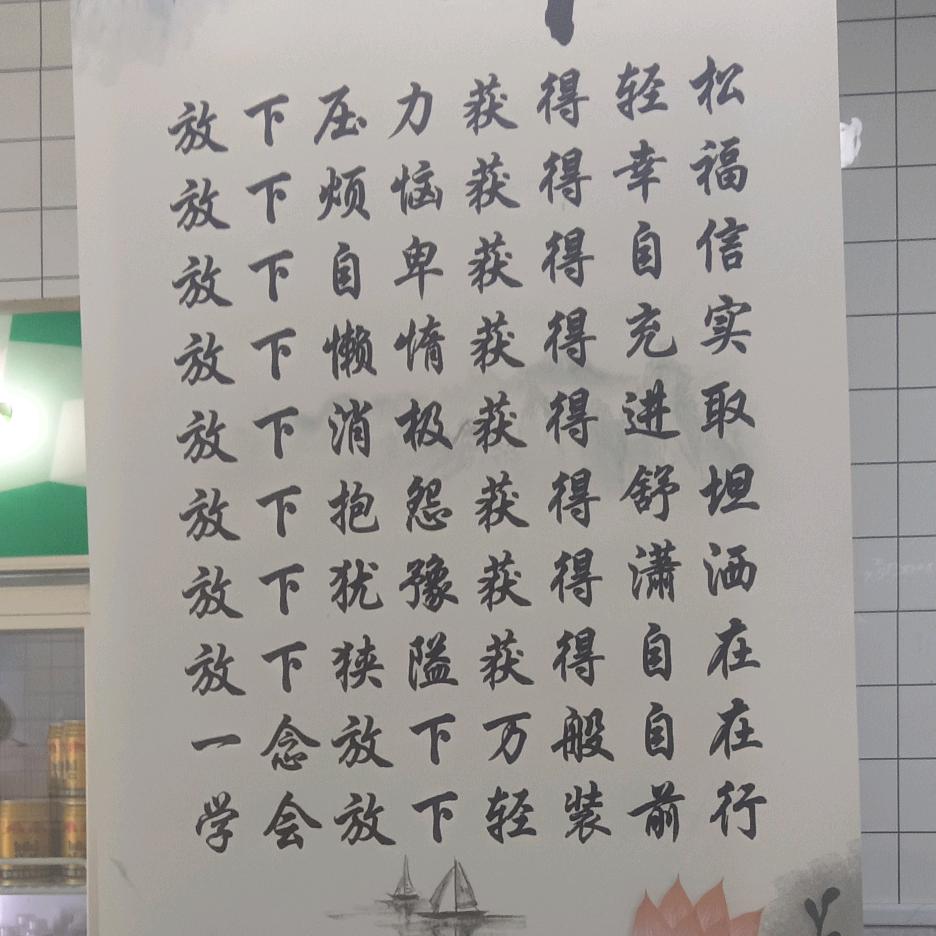 放下压力获得轻松
放下烦恼获得幸福
放下自卑获得自信
放下懒惰获得充实
放下消极获得进取
放下抱怨获得舒坦
放下犹豫获得潇洒
放下狭隘获得自在
一念放下万般自在
学会放下轻装前行